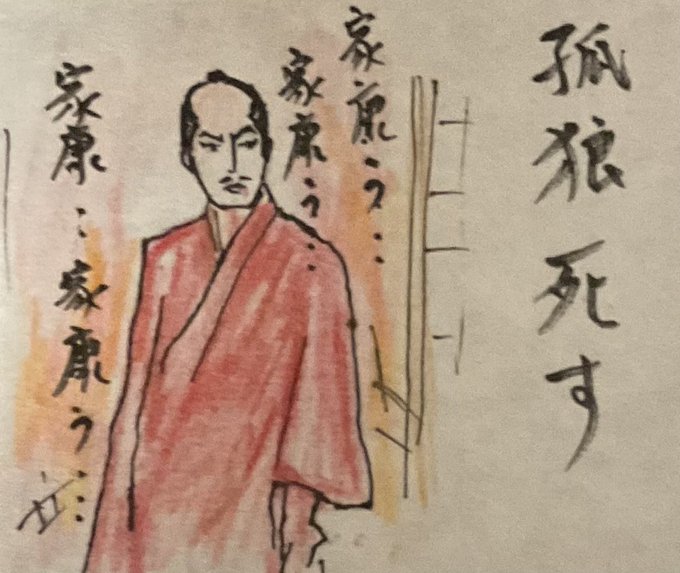 孤狼 死す
家康う‥
家康う‥
家康‥家康う…